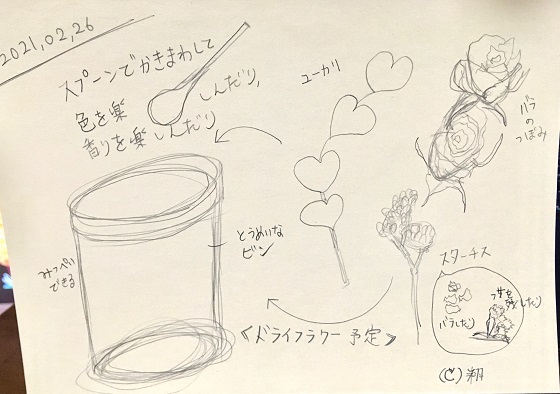 2021,02,26
スプーンでかきまわして
色を楽しんだり、
香りを楽しんだり
ユーカリ
バラ
の
つぼみ
みっぺい
できる
とうめいな
ビン
スターチス
バラしたり
フサを
残したり
《ドライフラワー予定》
(C)翔